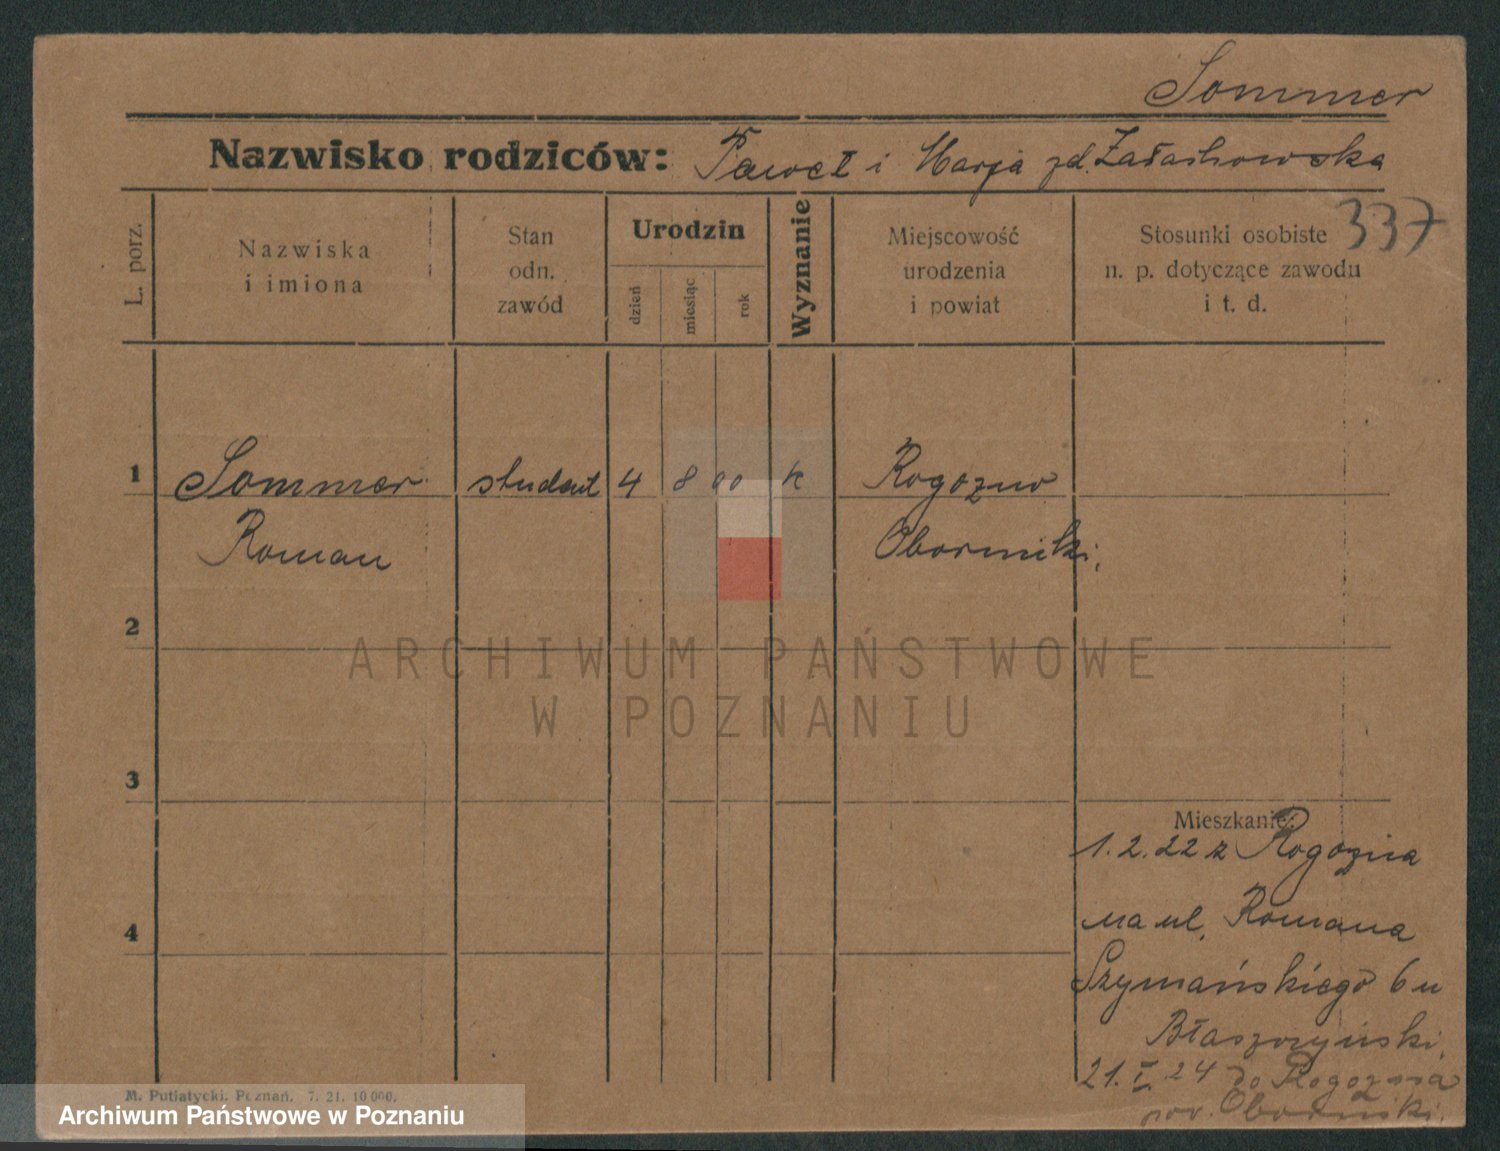 Sommer
Nazwisko rodziców: Paweł i Marja zd. Załachowska
337
L. porz.
Nazwiska
i imiona
Stan
odn.
zawód
Urodzin
dzień
miesiąc
rok
Wyznanie
Miejscowość
urodzenia
i powiat
Stosunki osobiste
n. p. dotyczące zawodu
i t. d.
1 Sommer student 4 8 00 k Rogozno
Roman Oborniki,
2
3
Mieszkanie:
1.2.22 z Rogozna
4
na ul. Romana
Szymańskiego 6 u
Błaszczyński,
21. I. 24 do Rogozna
pow. Oborniki.
M. Putiatycki. Poznań. 7. 21. 10 000.
ARCHIWUM PAŃSTWOWE
W POZNANIU
Archiwum Państwowe w Poznaniu